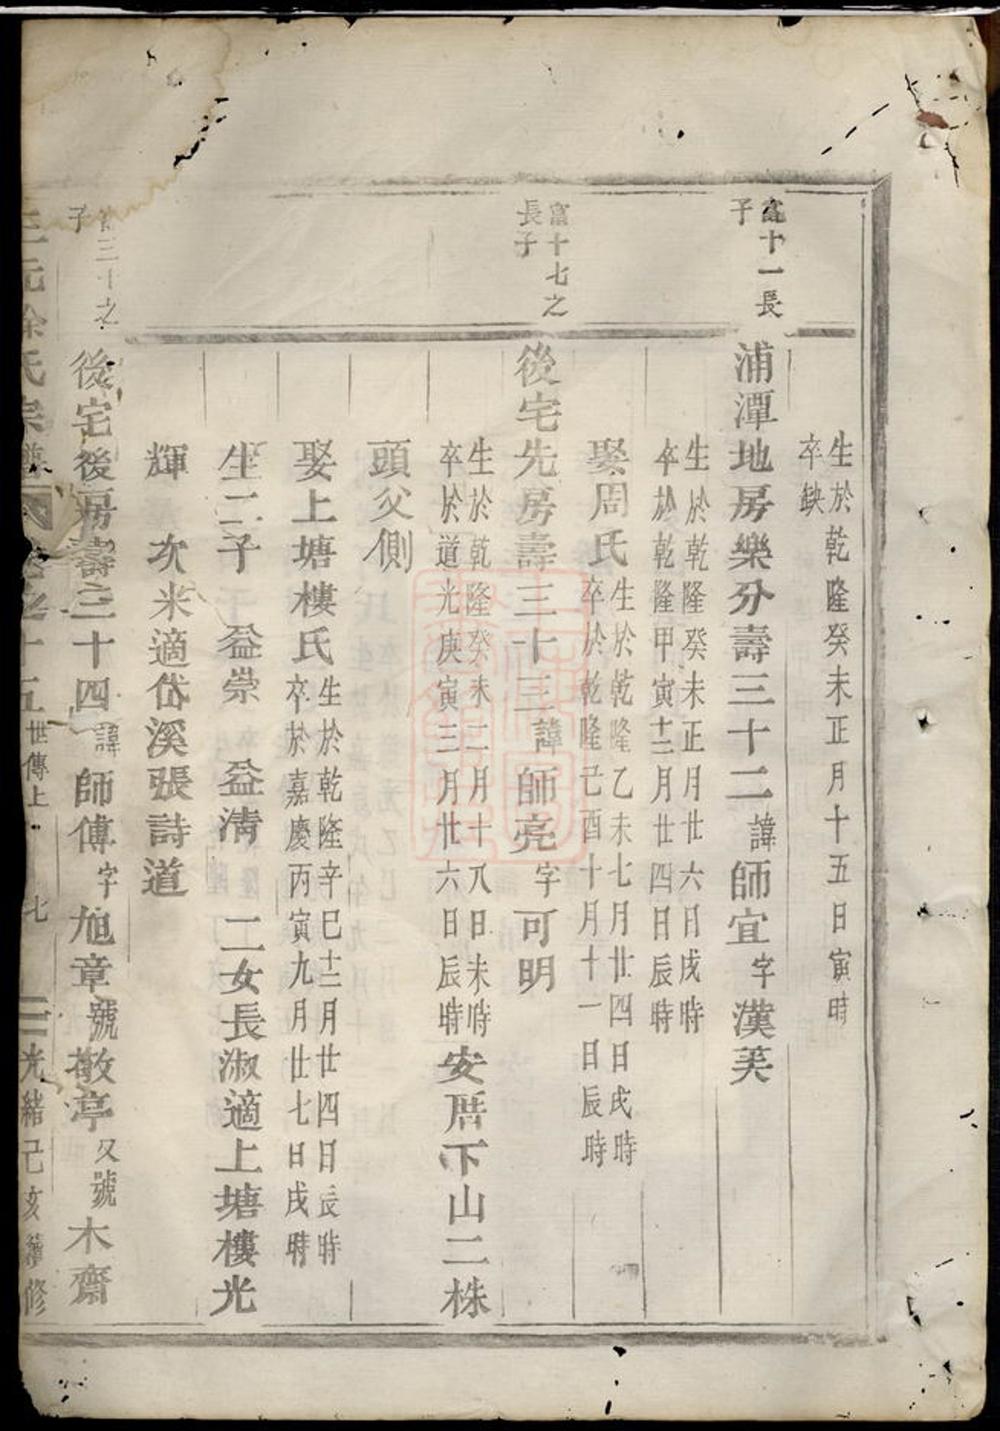 生於乾隆癸未正月十五日寅時
卒缺
富十一長
子
浦潭地房樂分壽三十二諱師宜字漢英
生於乾隆癸未正月廿六日戌時
卒於乾隆甲寅十二月廿四日辰時
娶周氏
生於乾隆乙未七月廿四日戌時
卒於乾隆己酉十月十一日辰時
富十七之
長子
後宅先房壽三十三諱師亮字可明
生於乾隆癸未二月十八日未時
卒於道光庚寅三月廿六日辰時
安厝下山二株
頭父側
娶上塘樓氏
生於乾隆辛巳十二月廿四日辰時
卒於嘉慶丙寅九月廿七日戌時
生二子 益崇 益清 二女長淑適上塘樓光
輝 次米適岱溪張詩道
三十之
子
後宅後房壽三十四諱師傅字旭章號敬亭又號木齋
氏宗譜
之十五
世傳上
七
光緒己亥續修